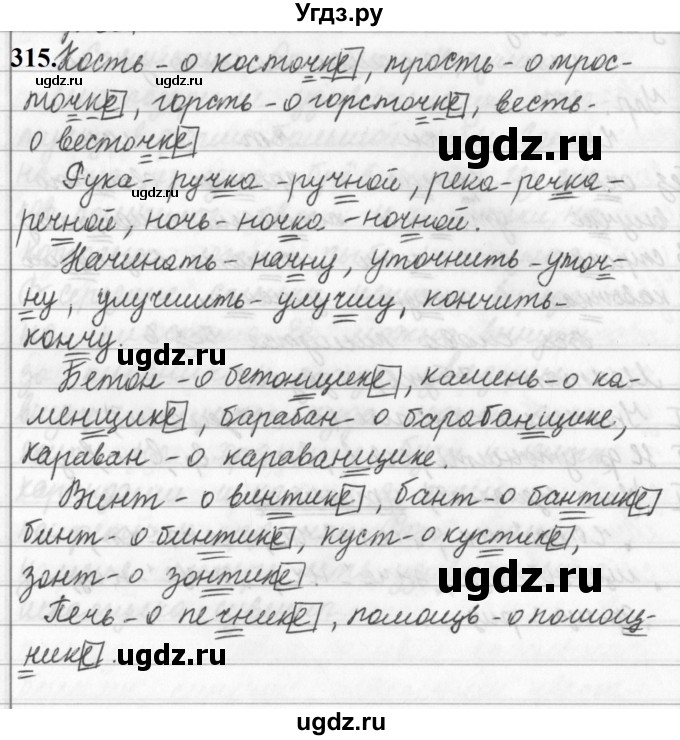 Угдз.ру
315. Кость - о косточке, трость - о трос-
точке, горсть - о горсточке, весть -
о весточке
ugdz.ru
Рука - ручка - ручной, река - речка -
речной, ночь - ночка - ночной.
ugdz.ru
Начинать - начну, уточнить - уточ-
ну, улучшить - улучшу, кончить -
кончу.
ugdz.ru
Бетон - о бетонщике, камень - о ка-
менщике, барабан - о барабанщике,
караван - о караванщике.
Винт - о винтике, бант - о бантике
бинт - о бинтике, куст - о кустике,
зонт - о зонтике.
ugdz.ru
Печь - о печнике, помощь - о помощ-
нике.
ugdz.ru
ugdz.ru